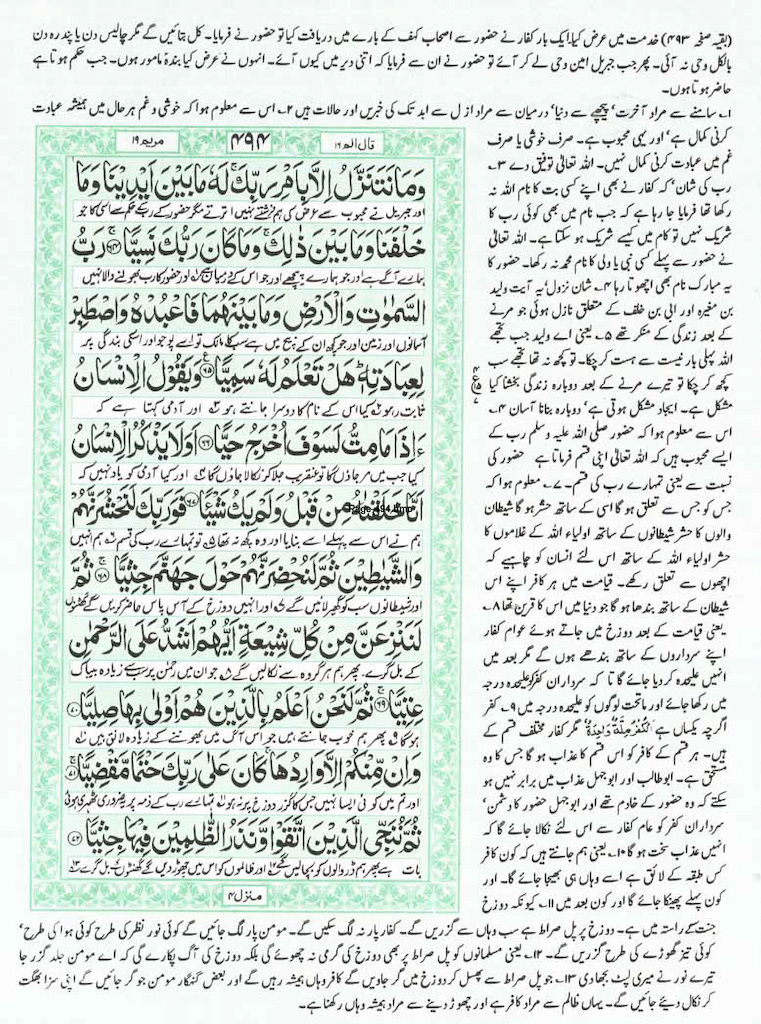 (بقیہ صفحہ ۴۹۳) خدمت میں عرض کیا۔ ایک بار کفار نے حضور سے اصحاب کہف کے بارے میں دریافت کیا تو حضور نے فرمایا۔ کل بتائیں گے مگر چالیس دن یا پندرہ دن
بالکل وحی نہ آئی۔ پھر جب جبریل امین وحی لے کر آئے تو حضور نے ان سے فرمایا کہ اتنی دیر میں کیوں آئے۔ انہوں نے عرض کیا بندہ مامور ہوں۔ جب حکم ہوتا ہے
حاضر ہوتا ہوں۔
۱۔ سامنے سے مراد آخرت' پیچھے سے دنیا' درمیان سے مراد ازل سے ابد تک کی خبریں اور حالات ہیں ۲۔ اس سے معلوم ہوا کہ خوشی و غم ہر حال میں ہمیشہ عبادت
کرنی کمال ہے' اور یہی محبوب ہے۔ صرف خوشی یا صرف
غم میں عبادت کرنی کمال نہیں۔ اللہ تعالٰی توفیق دے ۳۔
رب کی شان' کہ کفار نے بھی اپنے کسی بت کا نام اللہ نہ
رکھا تھا فرمایا جا رہا ہے کہ جب نام میں بھی کوئی رب کا
شریک نہیں تو کام میں کیسے شریک ہو سکتا ہے۔ اللہ تعالٰی
نے حضور سے پہلے کسی نبی یا ولی کا نام محمد نہ رکھا۔ حضور کا
یہ مبارک نام بھی اچھوتا رہا ۴۔ شان نزول' یہ آیت ولید
بن مغیرہ اور ابی بن خلف کے متعلق نازل ہوئی جو مرنے
کے بعد زندگی کے منکر تھے ۵۔ یعنی اے ولید جب تجھے
اللہ پہلی بار نیست سے ہست کر چکا۔ تو کچھ نہ تھا تجھے سب
کچھ کر چکا تو تیرے مرنے کے بعد دوبارہ زندگی بخشنا کیا
مشکل ہے۔ ایجاد مشکل ہوتی ہے' دوبارہ بنانا آسان ۶۔
اس سے معلوم ہوا کہ حضور صلی اللہ علیہ وسلم رب کے
ایسے محبوب ہیں کہ اللہ تعالٰی اپنی قسم فرماتا ہے حضور کی
نسبت سے یعنی تمہارے رب کی قسم۔ ۷۔ معلوم ہوا کہ
جس کو جس سے تعلق ہو گا اسی کے ساتھ حشر ہو گا شیطان
والوں کا حشر شیطانوں کے ساتھ اولیاء اللہ کے غلاموں کا
حشر اولیاء اللہ کے ساتھ اس لئے انسان کو چاہیے کہ
اچھوں سے تعلق رکھے۔ قیامت میں ہر کافر اپنے اس
شیطان کے ساتھ بندھا ہو گا جو دنیا میں اس کا قرین تھا ۸۔
یعنی قیامت کے بعد دوزخ میں جاتے ہوئے عوام کفار
اپنے سرداروں کے ساتھ بندھے ہوں گے مگر بعد میں
انہیں علیحدہ کر دیا جائے گا تا کہ سرداران کفر کو علیحدہ درجہ
میں رکھا جائے اور ماتحت لوگوں کو علیحدہ درجہ میں ۹۔ کفر
اگرچہ یکساں ہے الْكُفْرُ مِلَّةٌ وَاحِدَةٌ مگر کفار مختلف قسم کے
ہیں۔ ہر قسم کے کافر کو اس قسم کا عذاب ہو گا جس کا وہ
مستحق ہے۔ ابو طالب اور ابو جہل عذاب میں برابر نہیں ہو
سکتے کہ وہ حضور کے خادم تھے اور ابو جہل حضور کا دشمن'
سرداران کفر کو عام کفار سے اس لئے نکالا جائے گا کہ
انہیں عذاب سخت ہو گا ۱۰۔ یعنی ہم جانتے ہیں کہ کون کافر
کس طبقہ کے لائق ہے اسے وہاں ہی بھیجا جائے گا۔ اور
کون پہلے پھینکا جائے گا اور کون بعد میں ۱۱۔ کیونکہ دوزخ
قال الم ۱۶
۴۹۴
مریم ۱۹
وَمَا نَتَنَزَّلُ اِلَّا بِاَمْرِ رَبِّكَ لَهٗ مَا بَیْنَ اَیْدِیْنَا وَمَا
اور جبریل نے محبوب سے عرض کی ہم فرشتے نہیں اترتے مگر حضور کے رب کے حکم سے اسی کا جو
خَلْفَنَا وَمَا بَیْنَ ذٰلِكَ وَمَا كَانَ رَبُّكَ نَسِیًّا ۶۴ رَبُّ
ہمارے آگے ہے اور جو ہمارے پیچھے اور جو اس کے درمیان ہے اور حضور کا رب بھولنے والا نہیں
السَّمٰوٰتِ وَالْاَرْضِ وَمَا بَیْنَهُمَا فَاعْبُدْهُ وَاصْطَبِرْ
آسمانوں اور زمین اور جو کچھ ان کے بیچ میں ہے سب کا مالک تو اسے پوجو اور اسکی بندگی پر
لِعِبَادَتِهٖ هَلْ تَعْلَمُ لَهٗ سَمِیًّا ۶۵ وَیَقُوْلُ الْاِنْسَانُ
ثابت رہو کیا اس کے نام کا دوسرا جانتے ہو اور آدمی کہتا ہے کہ
ءَاِذَا مَا مِتُّ لَسَوْفَ اُخْرَجُ حَیًّا ۶۶ اَوَلَا یَذْكُرُ الْاِنْسَانُ
کیا جب میں مر جاؤں گا تو عنقریب جلا کر نکالا جاؤں گا اور کیا آدمی کو یاد نہیں کہ
اَنَّا خَلَقْنٰهُ مِنْ قَبْلُ وَلَمْ یَكُ شَیْئًا ۶۷ فَوَرَبِّكَ لَنَحْشُرَنَّهُمْ
Page-494.bmp
ہم نے اس سے پہلے اسے بنایا اور وہ کچھ نہ تھا تو تمہارے رب کی قسم ہم انہیں
وَالشَّیٰطِیْنَ ثُمَّ لَنُحْضِرَنَّهُمْ حَوْلَ جَهَنَّمَ جِثِیًّا ۶۸ ثُمَّ
اور شیطانوں سب کو گھیر لائیں گے اور انہیں دوزخ کے آس پاس حاضر کریں گے گھٹنوں
لَنَنْزِعَنَّ مِنْ كُلِّ شِیْعَةٍ اَیُّهُمْ اَشَدُّ عَلَى الرَّحْمٰنِ
کے بل گرے۔ پھر ہم ہر گروہ سے نکالیں گے جو ان میں رحمٰن پر سب سے زیادہ بیباک
عِتِیًّا ۶۹ ثُمَّ لَنَحْنُ اَعْلَمُ بِالَّذِیْنَ هُمْ اَوْلٰى بِهَا صِلِیًّا ۷۰
ہو گا پھر ہم خوب جانتے ہیں جو اس آگ میں بھوننے کے زیادہ لائق ہیں
وَاِنْ مِّنْكُمْ اِلَّا وَارِدُهَا كَانَ عَلٰى رَبِّكَ حَتْمًا مَّقْضِیًّا ۷۱
اور تم میں کوئی ایسا نہیں جس کا گزر دوزخ پر نہ ہو تمہارے رب کے ذمہ پر یہ ضرور ٹھہری ہوئی
ثُمَّ نُنَجِّی الَّذِیْنَ اتَّقَوْا وَّنَذَرُ الظّٰلِمِیْنَ فِیْهَا جِثِیًّا ۷۲
بات ہے پھر ہم ڈر والوں کو بچا لیں گے اور ظالموں کو اس میں چھوڑ دیں گے گھٹنوں کے بل گرے
منزل ۴
جنت کے راستہ میں ہے۔ دوزخ پر پل صراط ہے سب وہاں سے گزریں گے۔ کفار پار نہ لگ سکیں گے۔ مومن پار لگ جائیں گے کوئی نور نظر کی طرح کوئی ہوا کی طرح'
کوئی تیز گھوڑے کی طرح گزریں گے۔ ۱۲۔ یعنی مسلمانوں کو پل صراط پر بھی دوزخ کی گرمی نہ چھوئے گی بلکہ دوزخ کی آگ پکارے گی کہ اے مومن جلد گزر جا
تیرے نور نے میری لپٹ بجھا دی ۱۳۔ جو پل صراط سے پھسل کر دوزخ میں گر جاویں گے کافر وہاں ہمیشہ رہیں گے اور بعض گنہگار مومن جو گر جائیں گے اپنی سزا بھگت
کر نکال دیئے جائیں گے۔ یہاں ظالم سے مراد کافر ہے اور چھوڑ دینے سے مراد ہمیشہ وہاں رکھنا ہے۔